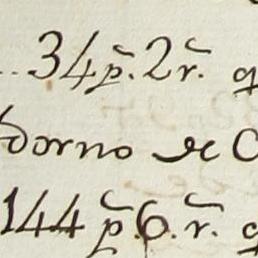 ..34 p̃. 2 r̃. q
dorno de C
144 p̃. 6. r̃. q